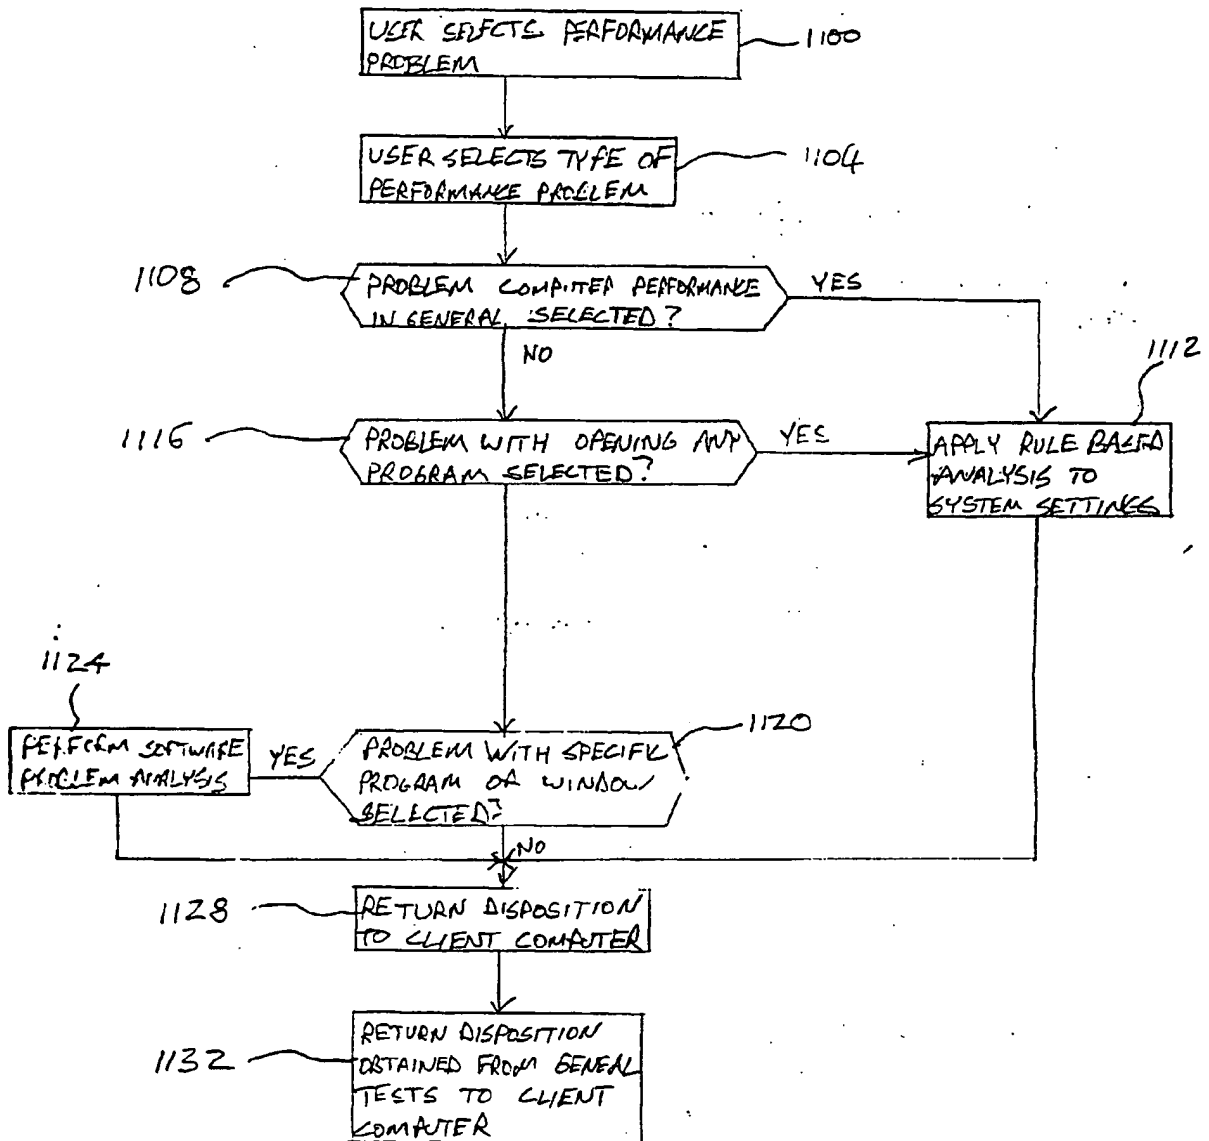 USER SELECTS PERFORMANCE
PROBLEM
1100
USER SELECTS TYPE OF
PERFORMANCE PROBLEM
1104
1108
PROBLEM COMPUTER PERFORMANCE
IN GENERAL SELECTED?
YES
NO
1112
1116
PROBLEM WITH OPENING ANY
PROGRAM SELECTED?
YES
APPLY RULE BASED
ANALYSIS TO
SYSTEM SETTINGS
1124
PERFORM SOFTWARE
PROBLEM ANALYSIS
YES
1120
PROBLEM WITH SPECIFIC
PROGRAM OR WINDOW
SELECTED?
NO
1128
RETURN DISPOSITION
TO CLIENT COMPUTER
1132
RETURN DISPOSITION
OBTAINED FROM GENERAL
TESTS TO CLIENT
COMPUTER